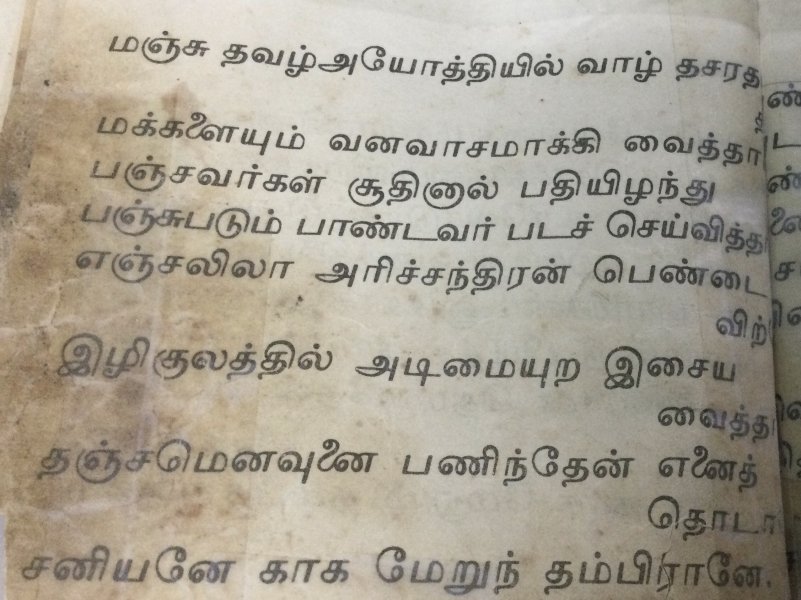 மஞ்சு தவழ்அயோத்தியில் வாழ் தசரத
மக்களையும் வனவாசமாக்கி வைத்தா
பஞ்சவர்கள் சூதினால் பதியிழந்து
பஞ்சுபடும் பாண்டவர் படச் செய்வித்த
எஞ்சலிலா அரிச்சந்திரன் பெண்டை
விற்
இழிகுலத்தில் அடிமையுற இசைய
வைத்தா
தஞ்சமெனவுனை பணிந்தேன் எனைத்
தொடா
சனியனே காக மேறுந் தம்பிரானே.